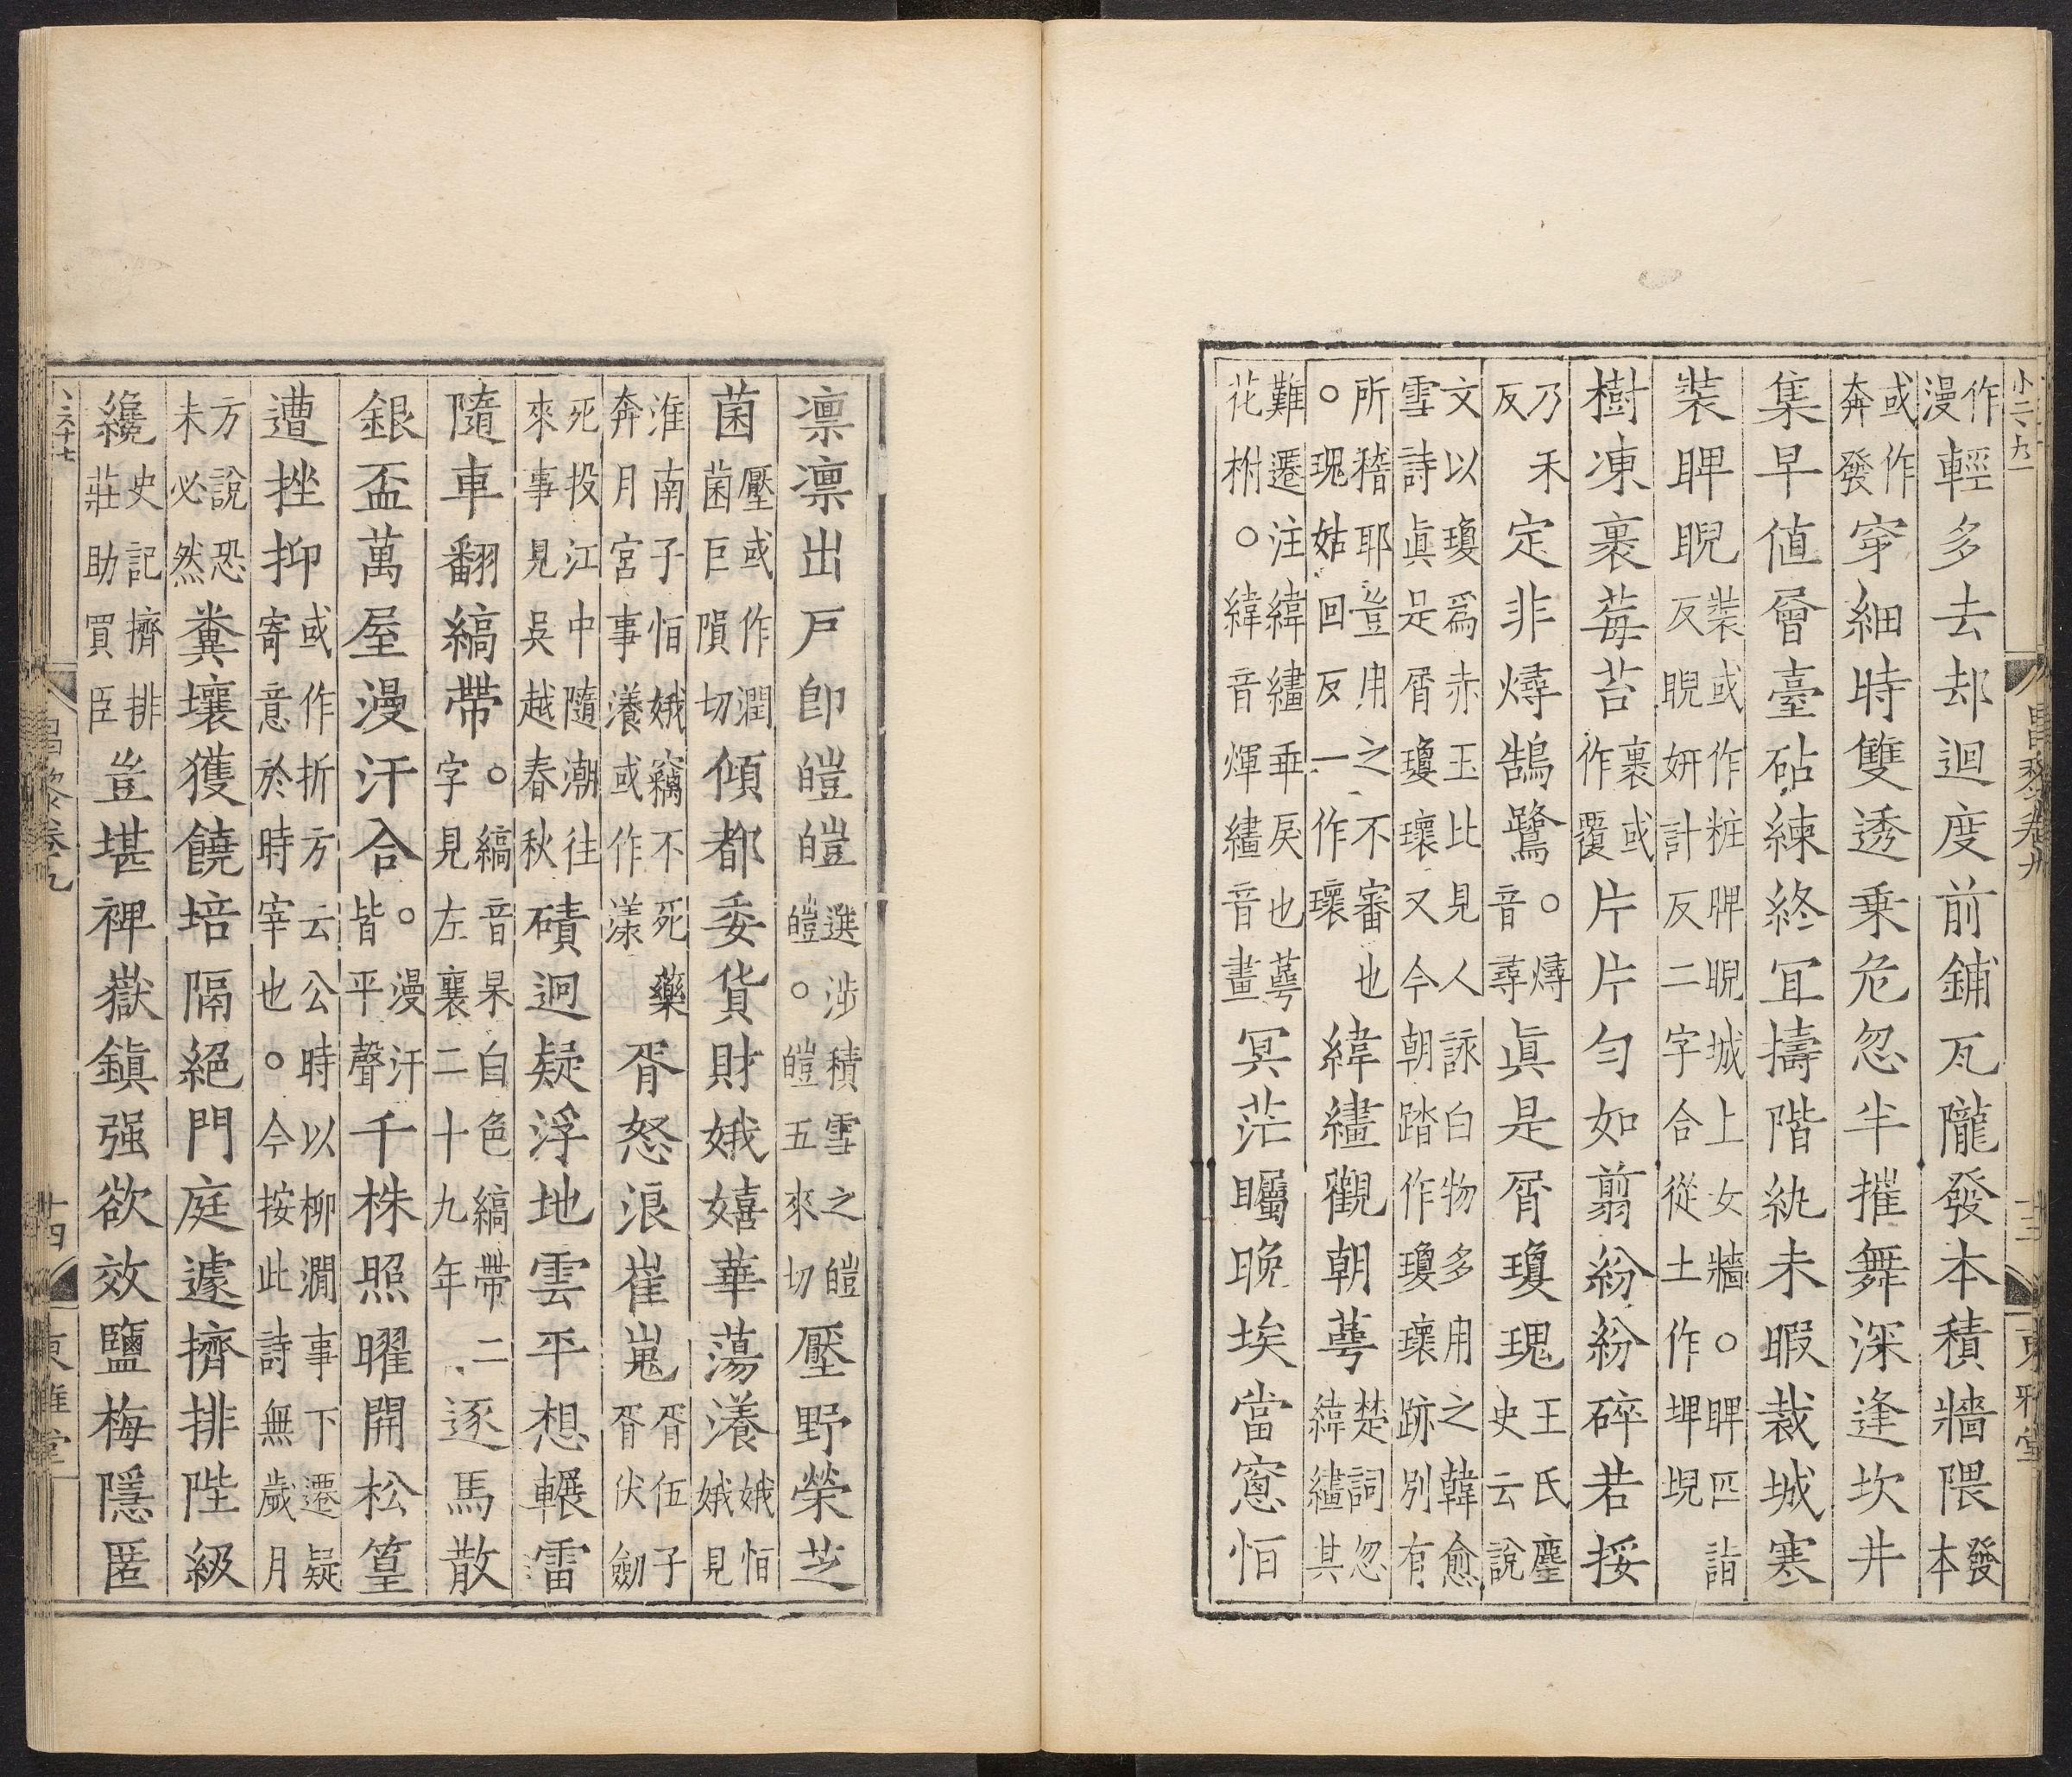 作漫輕多去却迴度前鋪瓦隴發本積牆隈發本
或作奔發穿細時雙透乗危忽半摧舞深逢坎井
集早値曾臺砧練終宜擣階紈未暇裁城寒
裝睥睨裝或作粧睥睨城上女牆○睥匹詣反睨妍計反二字合從土作埤堄
樹凍裹莓苔裹或作覆片片勻如翦紛紛碎若挼
乃禾反定非燖鵠鷺○燖音尋眞是屑瓊瑰王氏麈史云說
文以瓊爲赤玉比見人詠白物多用之韓愈雪詩眞是屑瓊瓌又今朝踏作瓊瓌跡別有
所稽耶豈用之不審也○瑰姑回反一作瓌緯繣觀朝萼楚詞忽緯繣其
難遷注緯繣乖戾也萼花柎○緯音煇繣音畫冥茫矚晚埃當窻恒
昌黎卷九 十三 東雅堂
凛凛出戸卽皚皚選涉積雪之皚皚○皚五來切壓野榮芝
菌壓或作潤菌巨隕切傾都委貨財娥嬉華蕩瀁娥恒娥見
淮南子恒娥竊不死藥奔月宮事瀁或作漾胥怒浪崔嵬胥伍子胥伏劒
死投江中隨潮往來事見吳越春秋磧迥疑浮地雲平想輾雷
隨車翻縞帶○縞音杲白色縞帶二字見左襄二十九年逐馬散
銀盃萬屋漫汗合○漫汗皆平聲千株照曜開松篁
遭挫抑或作折方云公時以柳澗事下遷疑寄意於時宰也○今按此詩無歲月
方說恐未必然糞壤獲饒培隔絕門庭遽擠排陛級
纔史記擠排莊助買臣豈堪禆嶽鎮强欲效鹽梅隱匿
昌黎卷九 十四 東雅堂